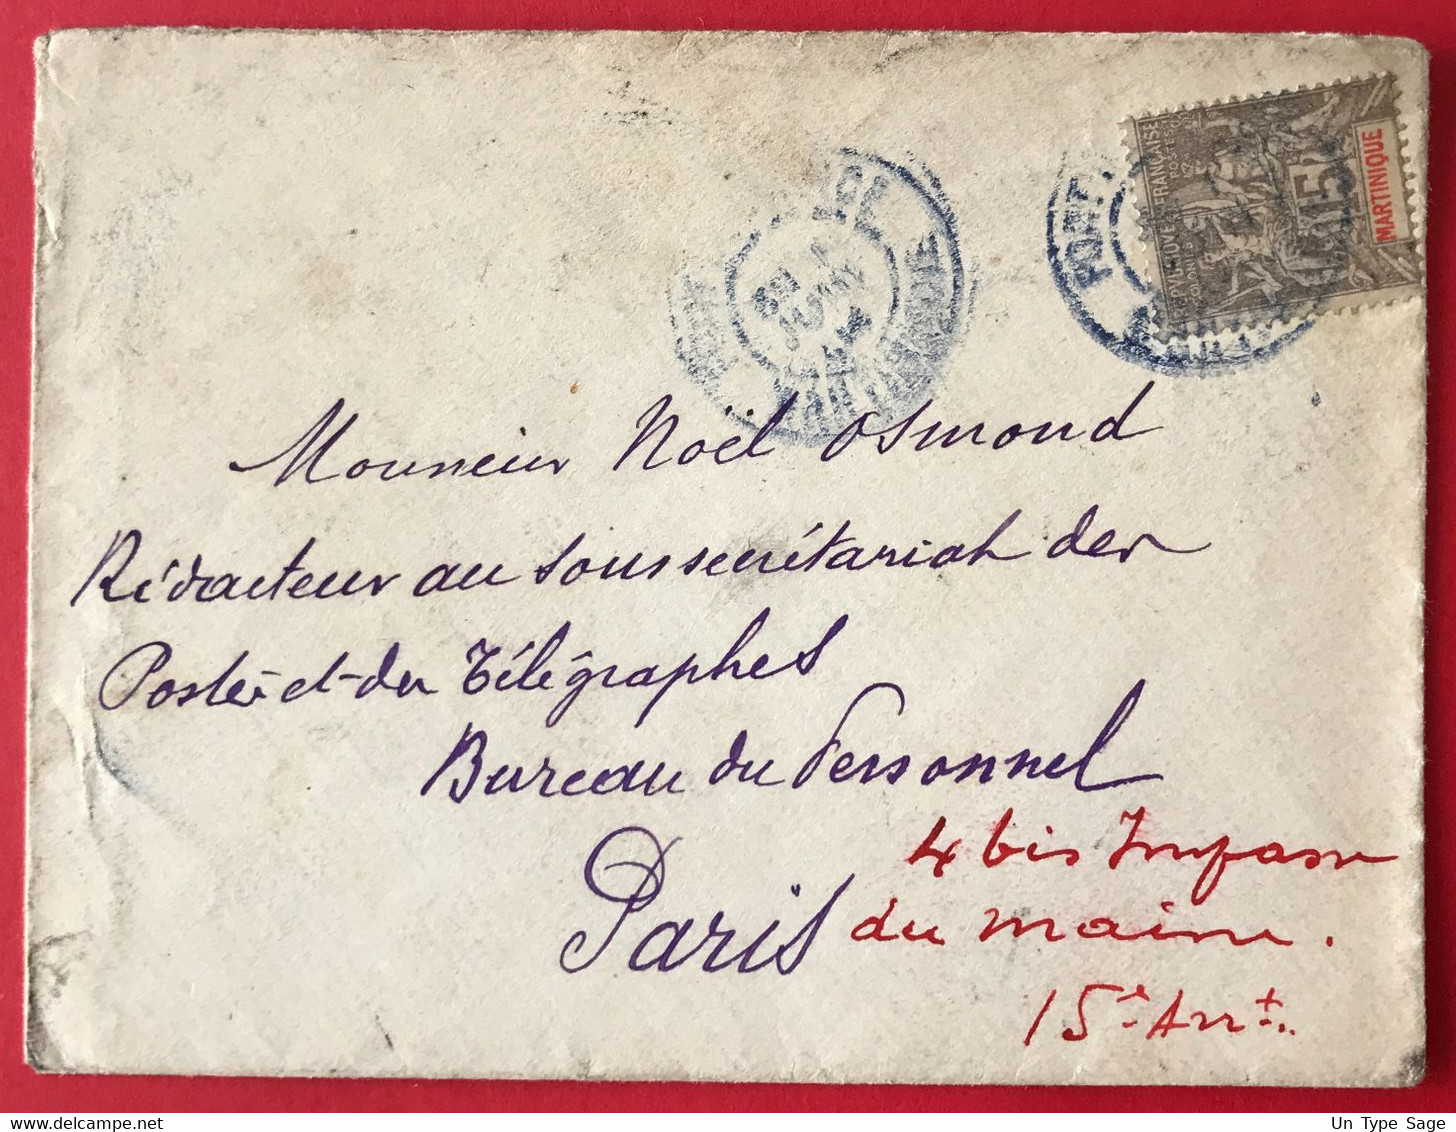 RÉPUBLIQUE FRANÇAISE
POSTES
15
MARTINIQUE
FORT
MARTINIQUE
Monsieur Noël Osmond
Rédacteur au Soussecrétariat des
Postes et des Télégraphes
Bureau du Personnel
Paris
4 bis Impasse
du Maine.
15e Arrt.
delcampe.net
Un Type Sage